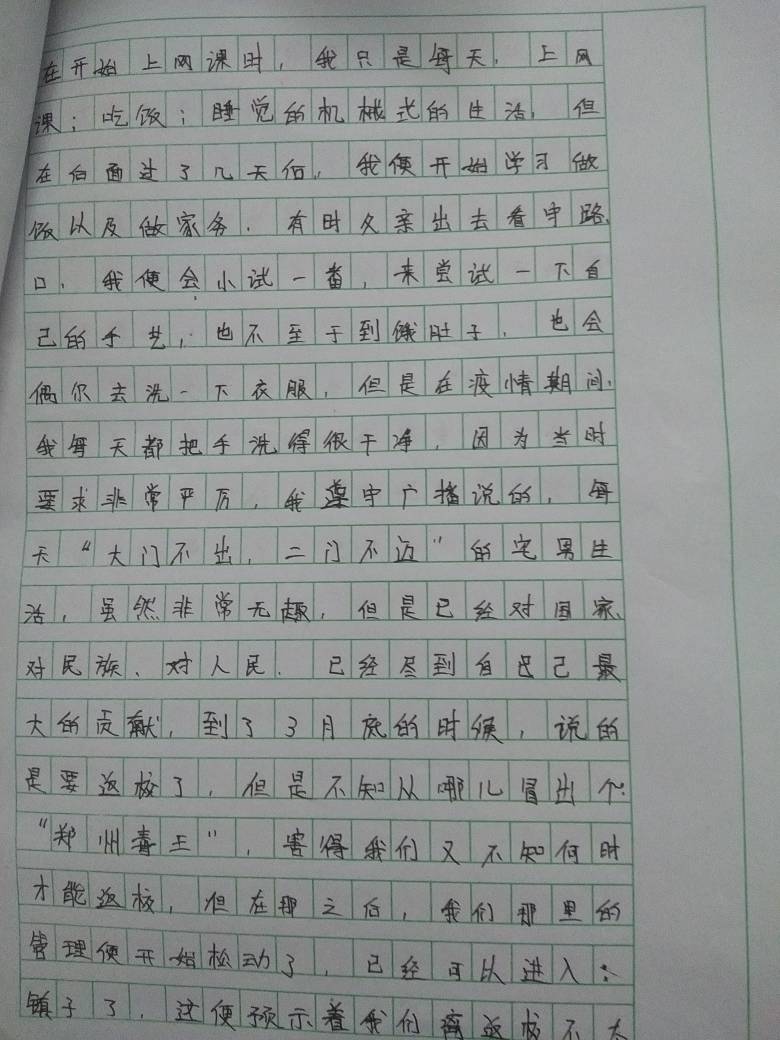 在开始上网课时，我只是每天，上网
课；吃饭；睡觉的机械式的生活，但
在白面过了几天后，我便开始学习做
饭以及做家务，有时父亲出去看守路
口，我便会小试一番，来尝试一下自
己的手艺，也不至于到饿肚子，也会
偶尔去洗一下衣服，但是在疫情期间，
我每天都把手洗得很干净，因为当时
要求非常严厉，我遵守广播说的，每
天“大门不出，二门不迈”的宅男生
活，虽然非常无趣，但是已经对国家、
对民族、对人民、已经尽到自己最
大的贡献，到了3月底的时候，说的
是要返校了，但是不知从哪儿冒出个
“郑州毒王”，害得我们又不知何时
才能返校，但在那之后，我们那里的
管理便开始松动了，已经可以进入
镇子了，这便预示着我们离返校不太